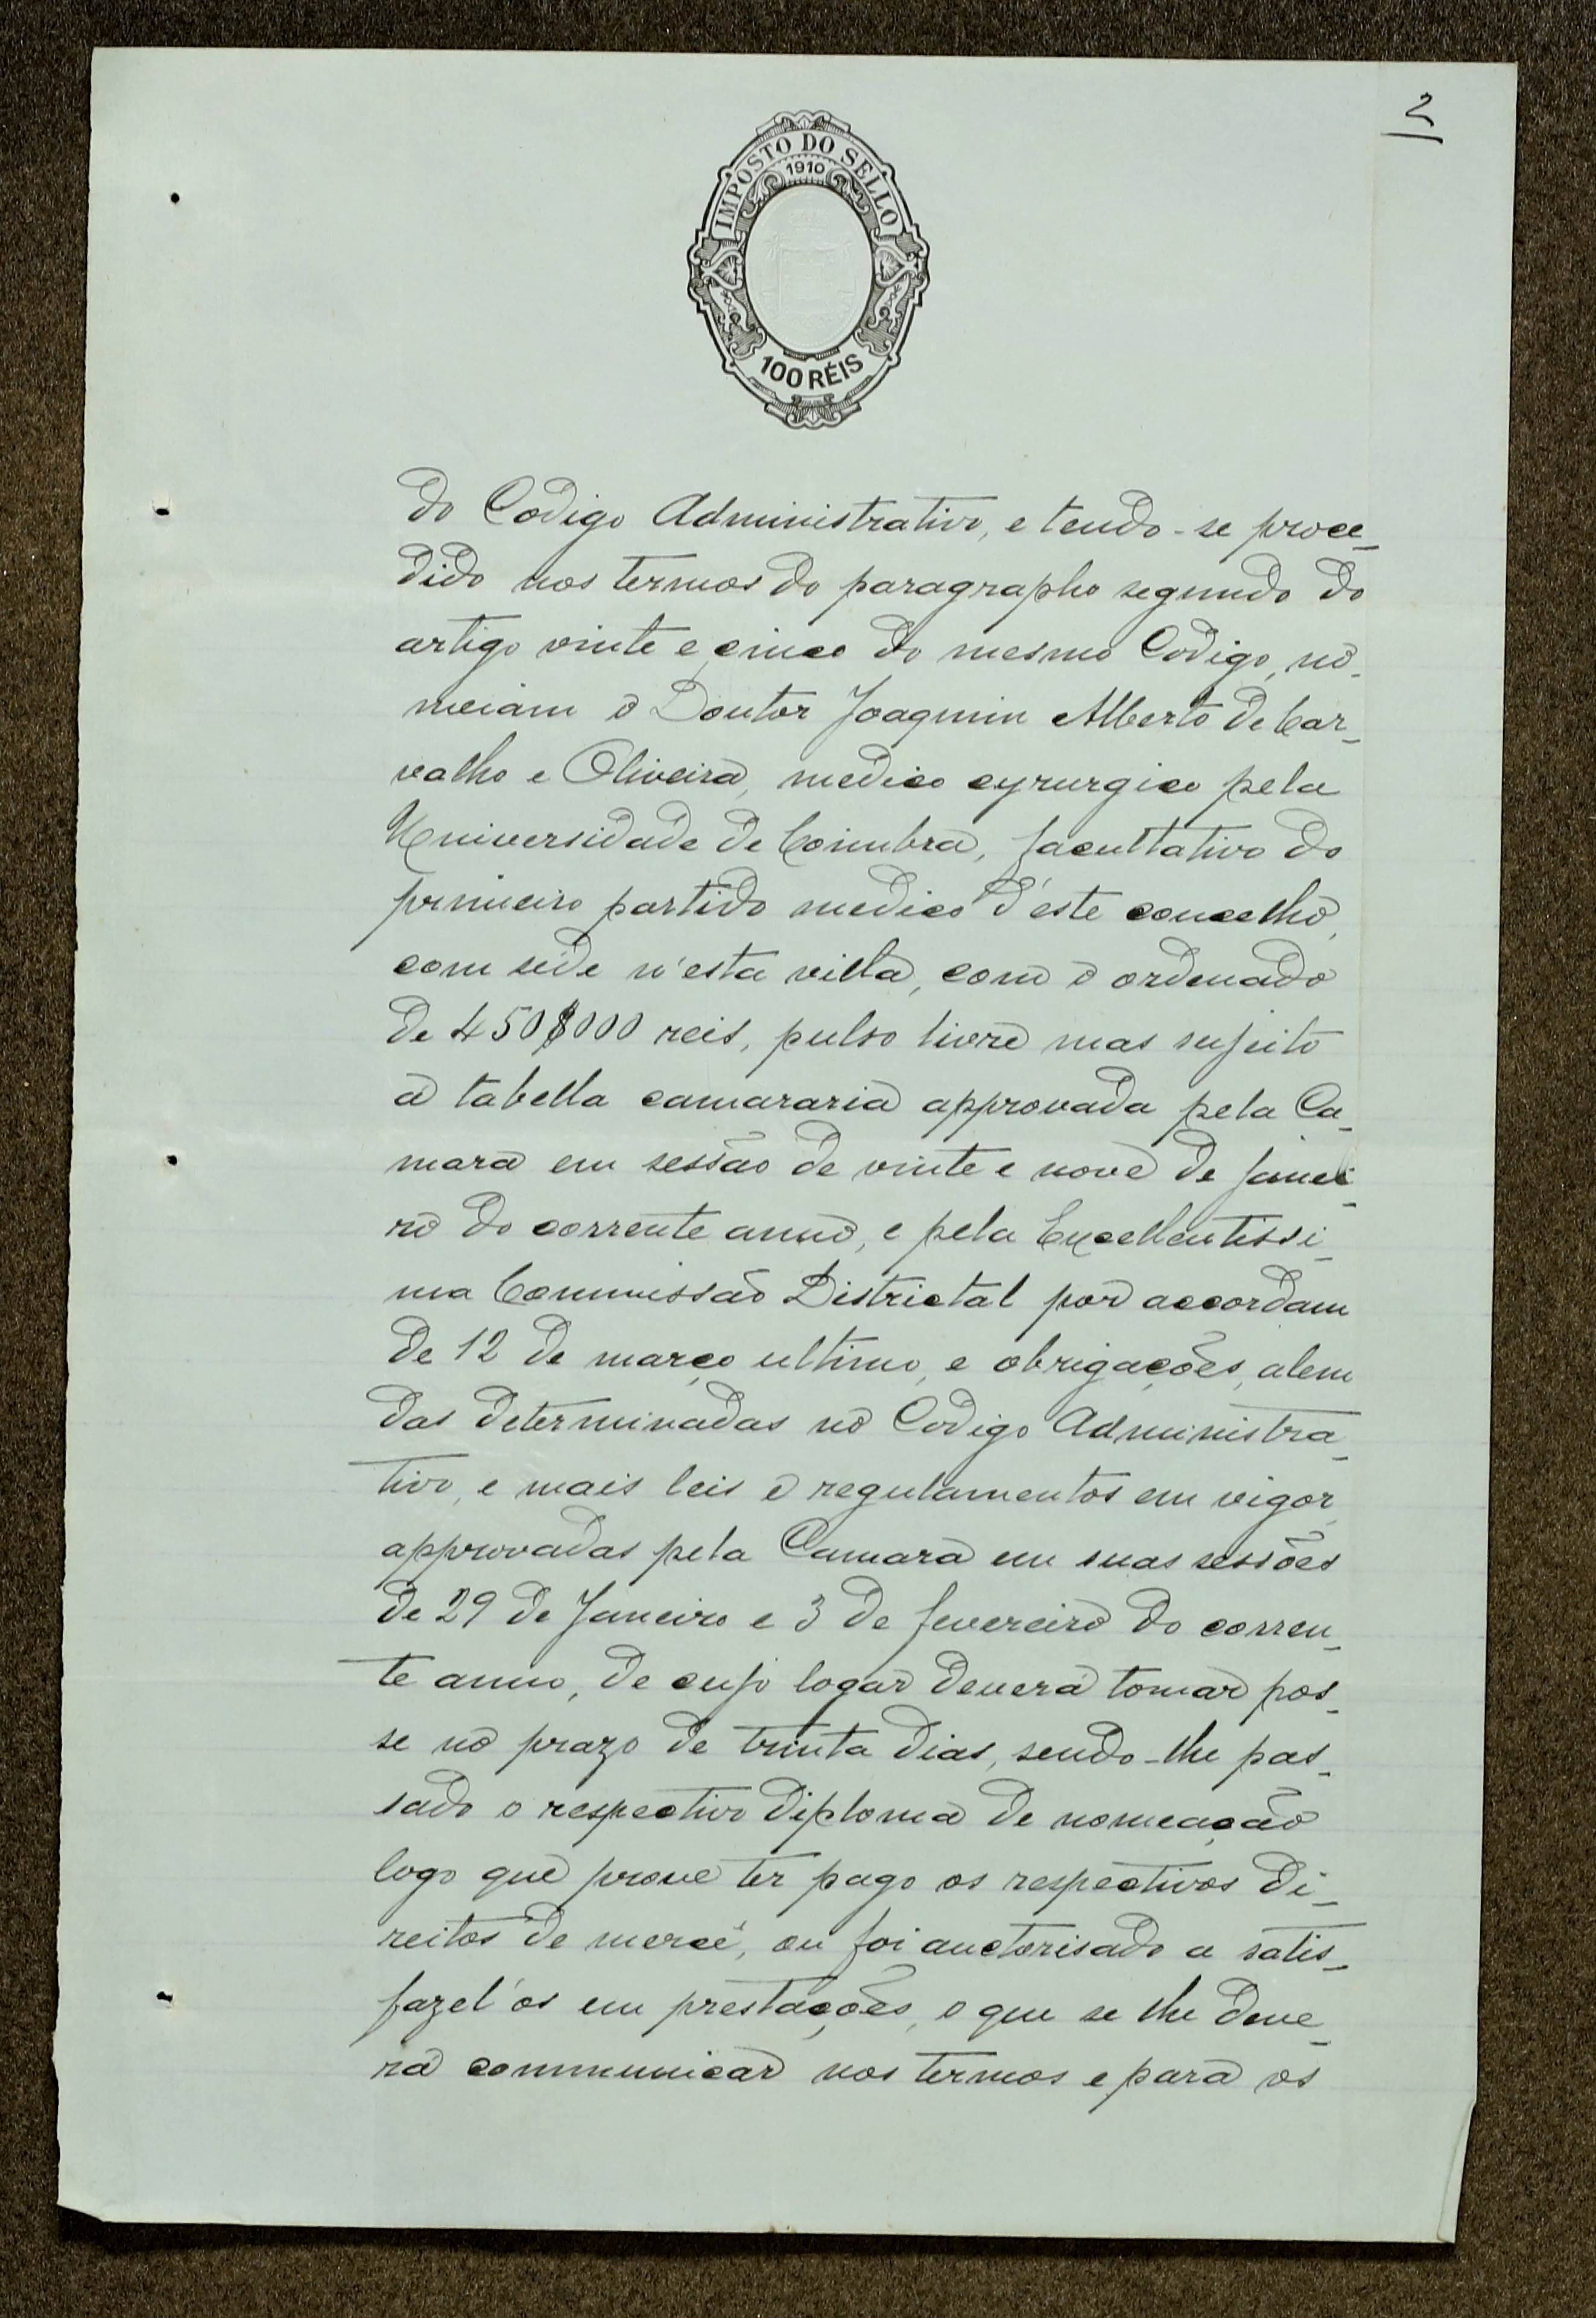 2
IMPOSTO DO SELLO
1910
100 RÉIS
do Codigo Administrativo, e tendo-se proce_
dido nos termos do paragrapho segundo do
artigo vinte e cinco do mesmo Codigo, no_
meiam o Doutor Joaquim Alberto de Car_
valho e Oliveira, medico cyrurgico pela
Universidade de Coimbra, facultativo do
primeiro partido medico d'este concelho,
com séde n'esta villa, com o ordenado
de 450$000 reis, pulso livre mas sujeito
á tabella camararia approvada pela Ca_
mara em sessão de vinte e nove de janei_
ro do corrente anno, e pela Excellentissi_
ma Commissão Districtal por accordam
de 12 de março ultimo, e obrigações, alem
das determinadas no Codigo Administra_
tivo, e mais leis e regulamentos em vigor,
approvadas pela Camara em suas sessões
de 29 de Janeiro e 3 de fevereiro do corren_
te anno, de cujo logar deverá tomar pos_
se no prazo de trinta dias, sendo-lhe pas_
sado o respectivo diploma de nomeação
logo que prove ter pago os respectivos di_
reitos de mercê, ou foi auctorisado a satis_
fazel'os em prestações, o que se lhe deve_
rá communicar nos termos e para os